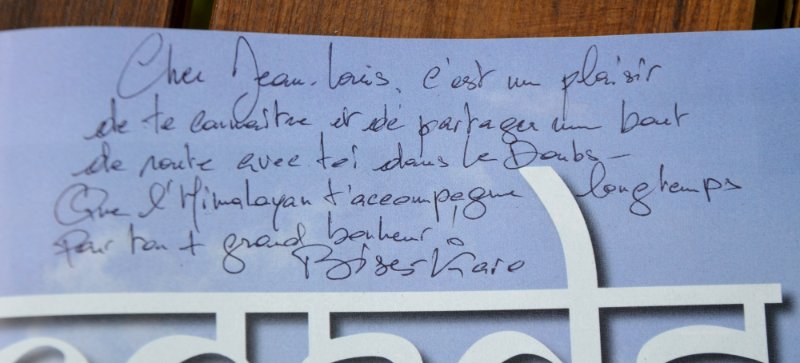 Cher Jean-Louis, c'est un plaisir
de te connaître et de partager un bout
de route avec toi dans le Doubs -
Que l'Himalayan t'accompagne longtemps
pour ton + grand bonheur !
Bises Karo